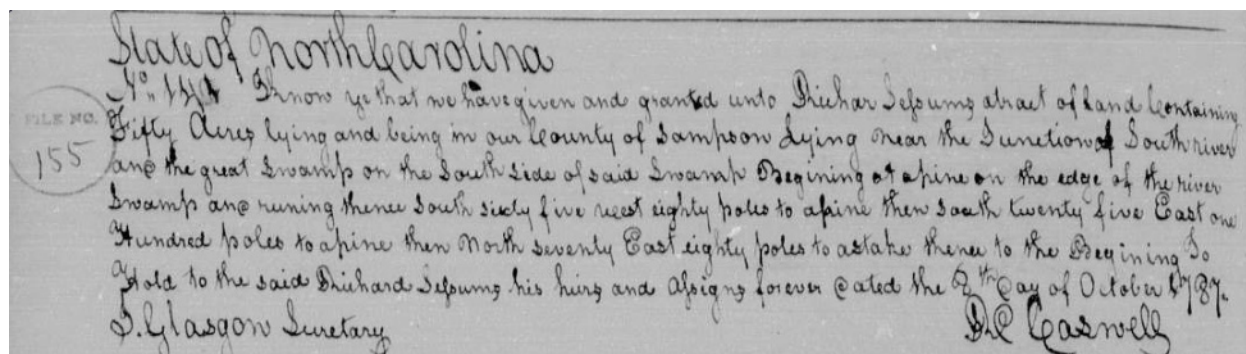 State of North Carolina
FILE NO.
155
No. Know ye that we have given and granted unto Richar Sessums atract of land Containing
Fifty Acres lying and being in our County of Sampson Lying near the Junction of South river
and the great Swamp on the South Side of said Swamp Begining at apine on the edge of the river
Swamp and runing thence South sixty five west eighty poles to apine then South twenty five East one
Hundred poles to apine then North seventy East eighty poles to astake thence to the Begining To
Hold to the said Richard Sessums his heirs and Assigns forever dated the 8th day of October 1787.
J. Glasgow Secretary
Rd Caswell